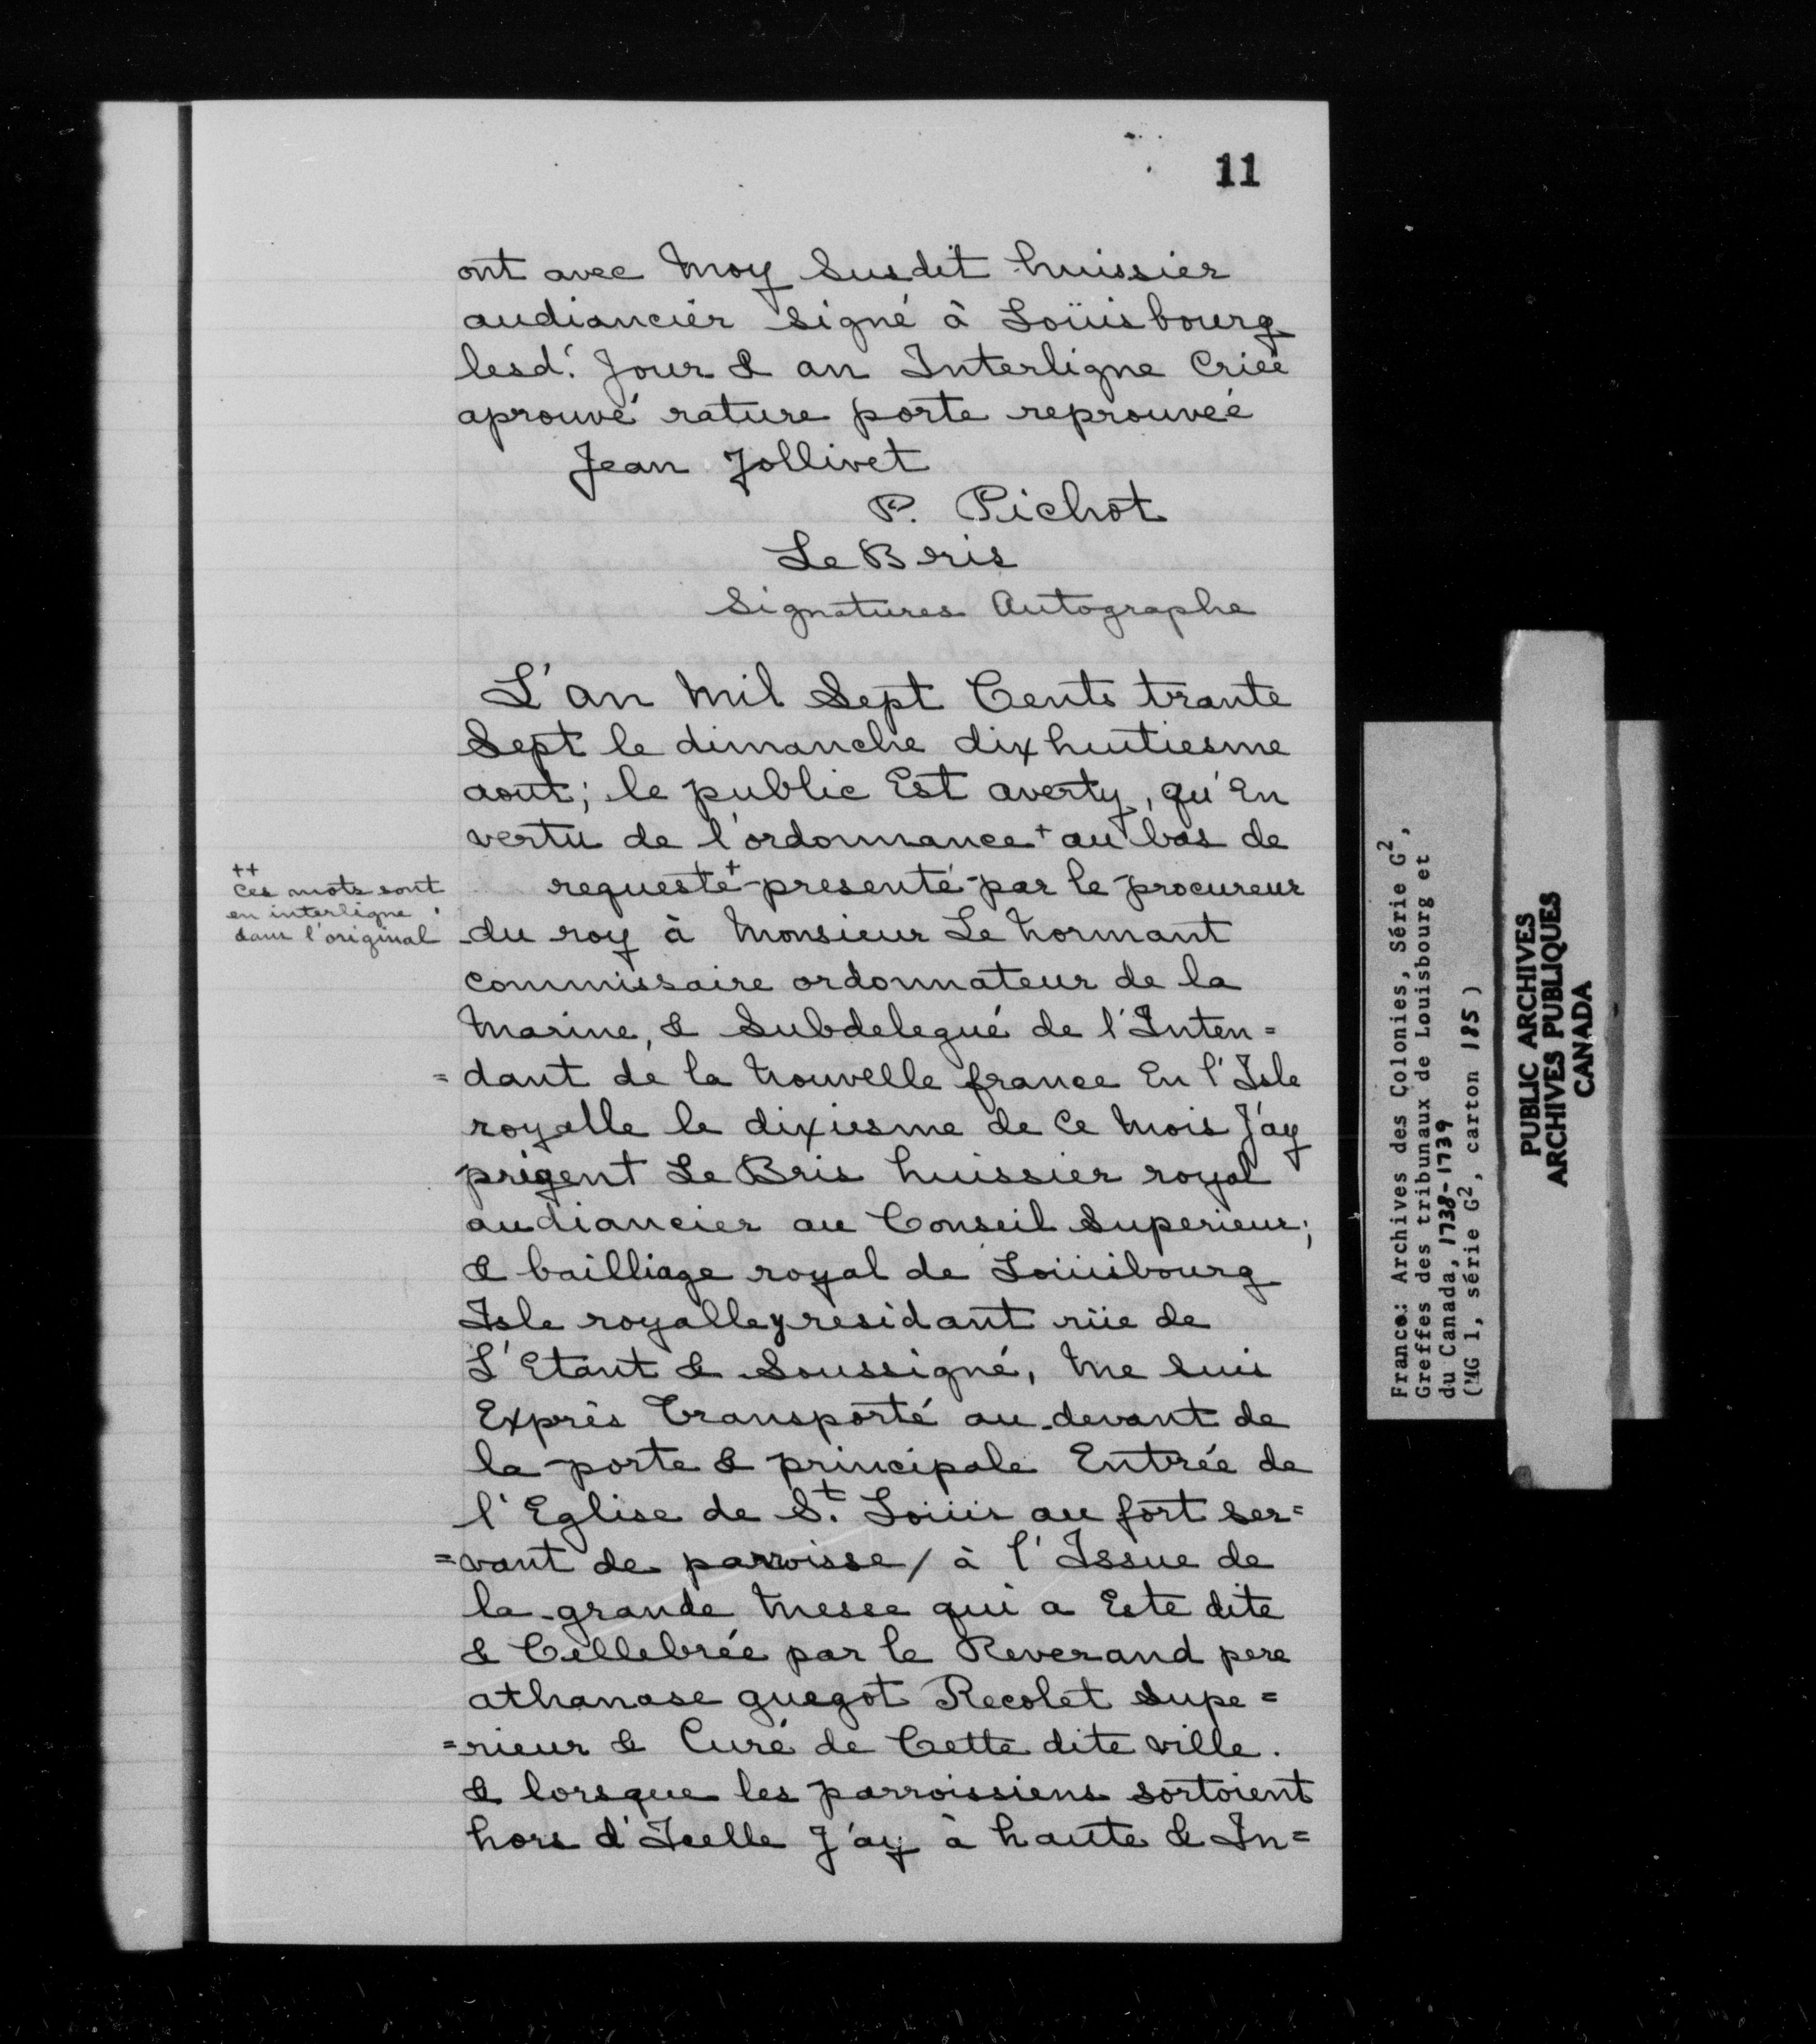 11
ont avec Moy Susdit huissier
audiancier signé à Loüisbourg
lesd. Jour & an Interligne Criée
aprouvé rature porte reprouvée
Jean Jollivet
P. Pichot
Le Bris
Signatures Autographe
L'an Mil Sept Cents trante
Sept le dimanche dix huitiesme
aout; le public Est averty, qu'En
vertu de l'ordonnance + au bas de
requeste + presenté par le procureur
++
ces mots sont
en interligne
dans l'original
du roy à Monsieur Le Normant
commissaire ordonnateur de la
Marine, & Subdelegué de l'Inten=
=dant de la Nouvelle france En l'Isle
royalle le dixiesme de Ce Mois J'ay
prigent Le Bris huissier royal
audiancier au Conseil Superieur;
& bailliage royal de Loüisbourg
Isle royalle y residant rüe de
L'Etant & Soussigné, Me suis
Exprès Transporté au devant de
la porte & principale Entrée de
l'Eglise de St. Loüis au fort ser=
=vant de parroisse / à l'Issue de
la grande Messe qui a Este dite
& Cellebrée par le Reverand pere
athanase guegot Recolet Supe=
=rieur & Curé de Cette dite ville.
& lorsque les parroissiens sortoient
hors d'Icelle J'ay à haute & In=
France: Archives des Colonies, Série G2,
Greffes des tribunaux de Louisbourg et
du Canada, 1738-1739
(MG 1, série G2, carton 185)
PUBLIC ARCHIVES
ARCHIVES PUBLIQUES
CANADA